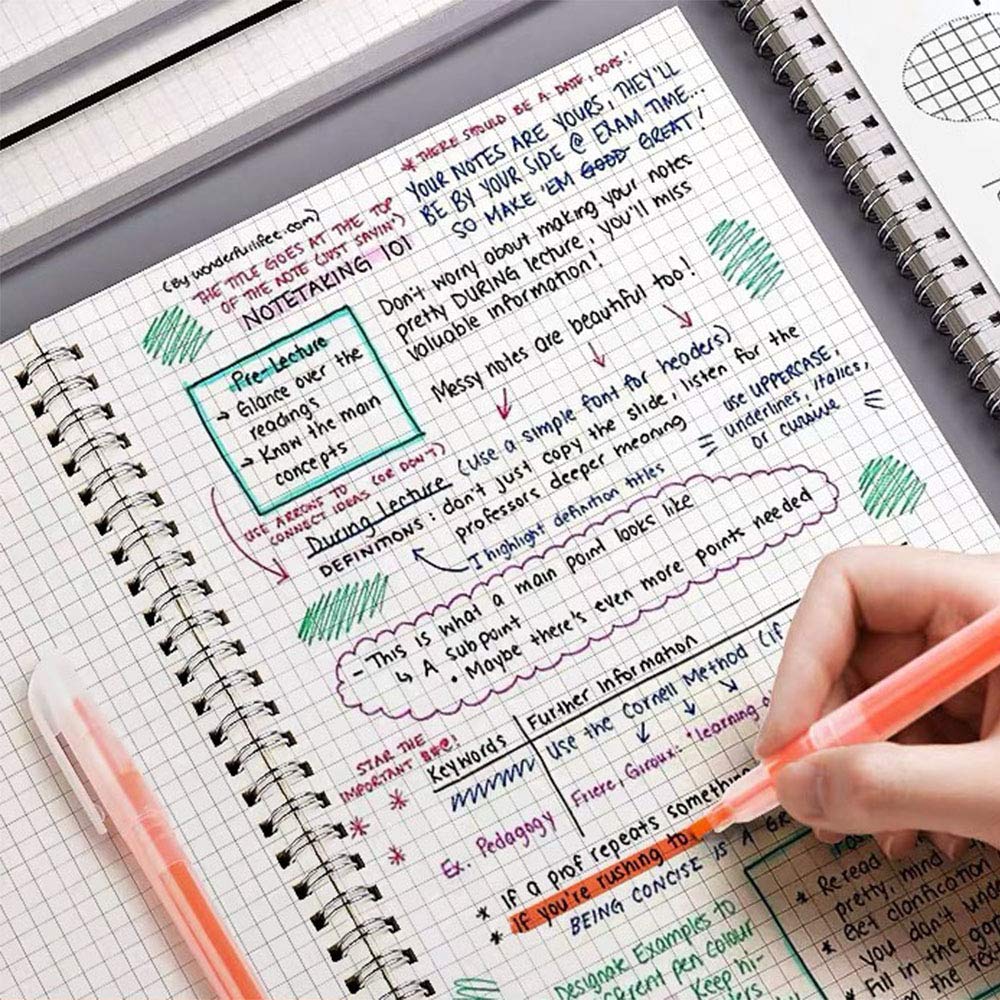 * THERE SHOULD BE A DATE, OOPS!
YOUR NOTES ARE YOURS, THEY'LL
BE BY YOUR SIDE @ EXAM TIME...
SO MAKE 'EM GOOD GREAT!
(By wonderfullifee.com)
THE TITLE GOES AT THE TOP
OF THE NOTE (JUST SAYIN')
NOTETAKING 101
Don't worry about making your notes
pretty DURING lecture, you'll miss
valuable information!
Messy notes are beautiful too!
Pre-Lecture
→ Glance over the
readings
→ Know the main
concepts
USE ARROWS TO
CONNECT IDEAS (OR DON'T)
During Lecture (use a simple font for headers)
DEFINITIONS: don't just copy the slide, listen for the
professors deeper meaning
I highlight definition titles
use UPPERCASE,
underlines, italics,
or cursive
- This is what a main point looks like
↳ A subpoint
. Maybe there's even more points needed
STAR THE
IMPORTANT
Keywords
Further information
Use the Cornell Method (if
Friere, Giroux: "learning
Ex. Pedagogy
* If a prof repeats something
* If you're rushing to
BEING CONCISE IS A
Designate Examples to
pen colour
Keep hi-
* Re-read
pretty, mind
* Get clarification
you don't
* Fill in the